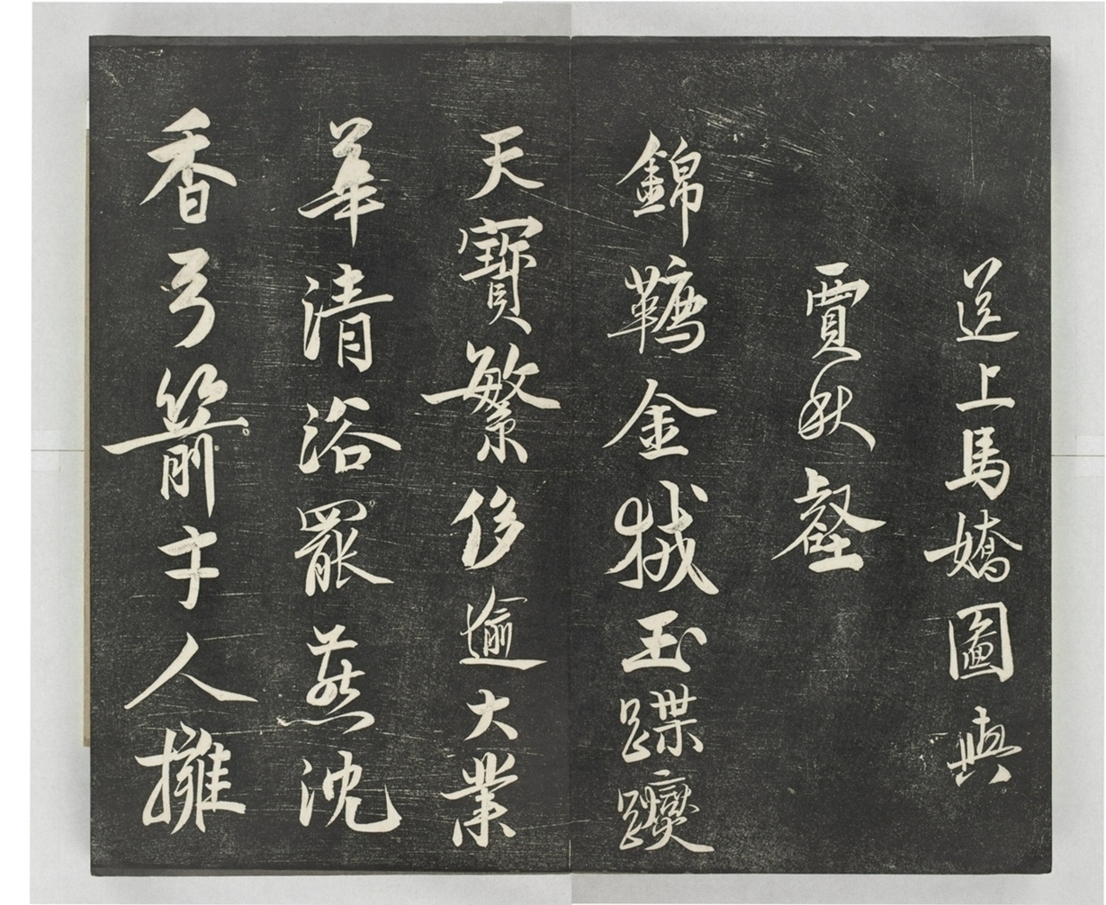 送上馬嬌圖與
賈秋壑
錦韉金狨玉蹀躞
天寶繁侈逾大業
華清浴罷燕沈
香弓箭千人擁